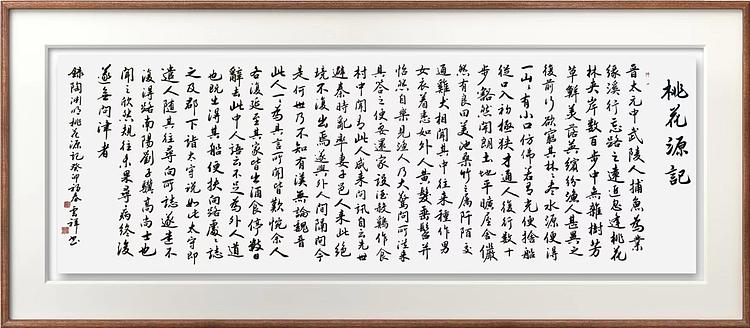 桃花源記
晉太元中武陵人捕魚為業
緣溪行忘路之遠近忽逢桃花
林夾岸數百步中無雜樹芳
草鮮美落英繽紛漁人甚異之
復前行欲窮其林林盡水源便得
一山山有小口仿佛若有光便捨船
從口入初極狹才通人復行數十
步豁然開朗土地平曠屋舍儼
然有良田美池桑竹之屬阡陌交
通雞犬相聞其中往來種作男
女衣着悉如外人黃髮垂髫並
怡然自樂見漁人乃大驚問所從來
具答之便要還家設酒殺雞作食
村中聞有此人咸來問訊自云先世
避秦時亂率妻子邑人來此絕
境不復出焉遂與外人間隔問今
是何世乃不知有漢無論魏晉
此人一一為具言所聞皆歎惋餘人
各復延至其家皆出酒食停數日
辭去此中人語云不足為外人道
也既出得其船便扶向路處處誌
之及郡下詣太守說如此太守即
遣人隨其往尋向所誌遂迷不
復得路南陽劉子驥高尚士也
聞之欣然規往未果尋病終後
遂無問津者
錄陶淵明桃花源記癸卯初春雲祥書